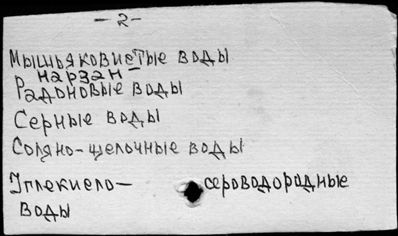 - 2 -
Мышьяковистые воды
Нарзан
Радоновые воды
Серные воды
Соляно-щелочные воды
Углекисло- сероводородные
воды